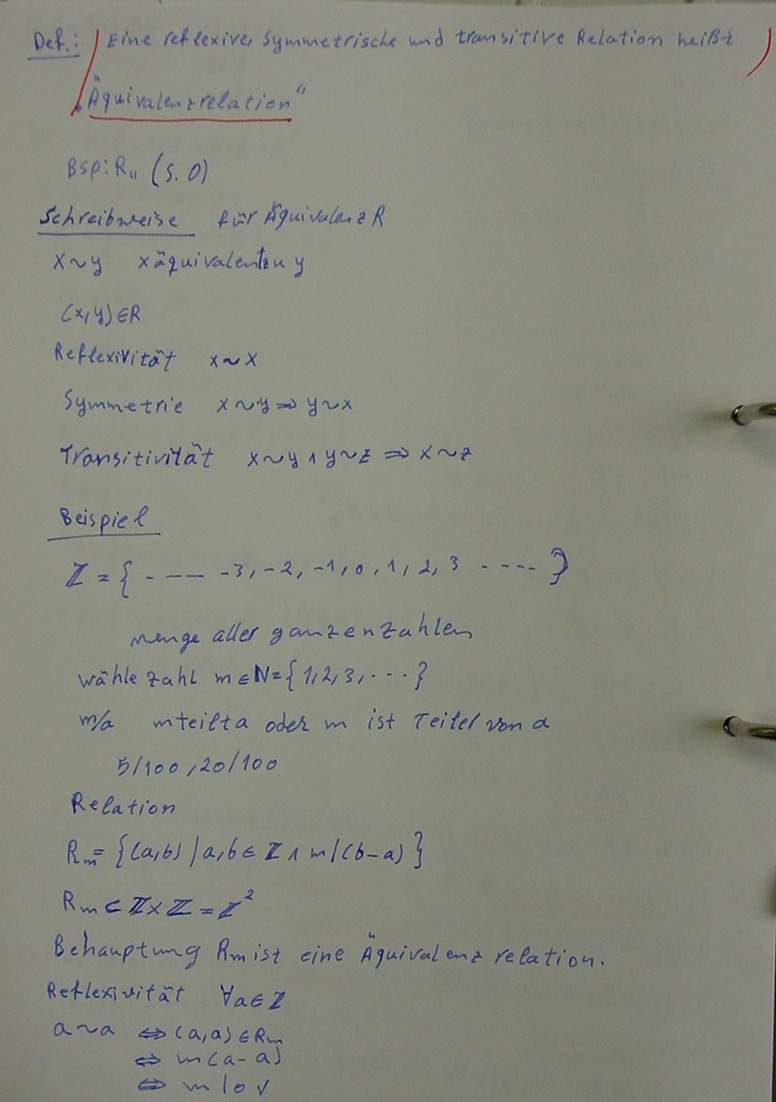 Def.: Eine reflexive, symmetrische und transitive Relation heißt
„Äquivalenzrelation“
Bsp: R₁₁ (s. O)
Schreibweise für Äquivalenz R
x~y x äquivalent zu y
(x,y)∈R
Reflexivität x~x
Symmetrie x~y ⇒ y~x
Transitivität x~y ∧ y~z ⇒ x~z
Beispiel
ℤ = { - --- -3, -2, -1, 0, 1, 2, 3 ---- }
Menge aller ganzen Zahlen
wähle Zahl m∈ℕ={1,2,3,...}
m/a m teilt a oder m ist Teiler von a
5/100, 20/100
Relation
Rₘ = {(a,b) / a,b∈ℤ ∧ m/(b-a)}
Rₘ⊂ℤ×ℤ=ℤ²
Behauptung Rₘ ist eine Äquivalenz relation.
Reflexivität ∀a∈ℤ
a~a ⇔ (a,a)∈Rₘ
⇔ m(a-a)
⇔ m|0 √